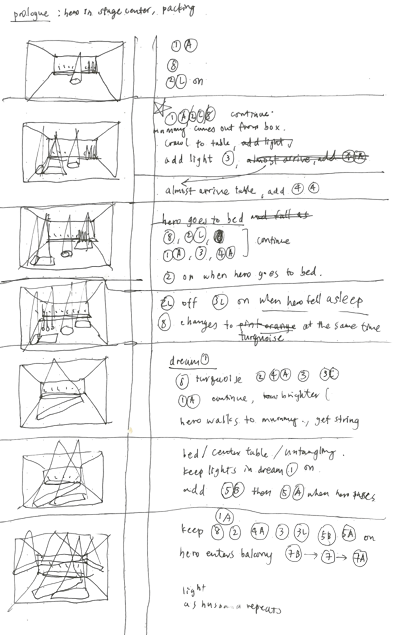 prologue : hero in stage center, packing
1A
8
2L on
1A/2L/8 continue.
mummy comes out from box.
crawl to table, add light
add light 3, almost arrive, add 4A
almost arrive table, add 4 A
hero goes to bed and fall as
8, 2L,
1A, 3, 4A
continue
2 on when hero goes to bed.
2L off 3L on when hero fell asleep
8 changes to pink orange at the same time
turquoise
dream 1
8 turquoise 2 4A 3 3L
1A continue, brighter
hero walks to mummy, get string
bed / center table / untangling.
keep lights in dream 1 on
add 5B then 5A when hero
1A
keep 8 2 4A 3 3L 5B 5A on
hero enters balcony 7B → 7 → 7A
light
as repeats